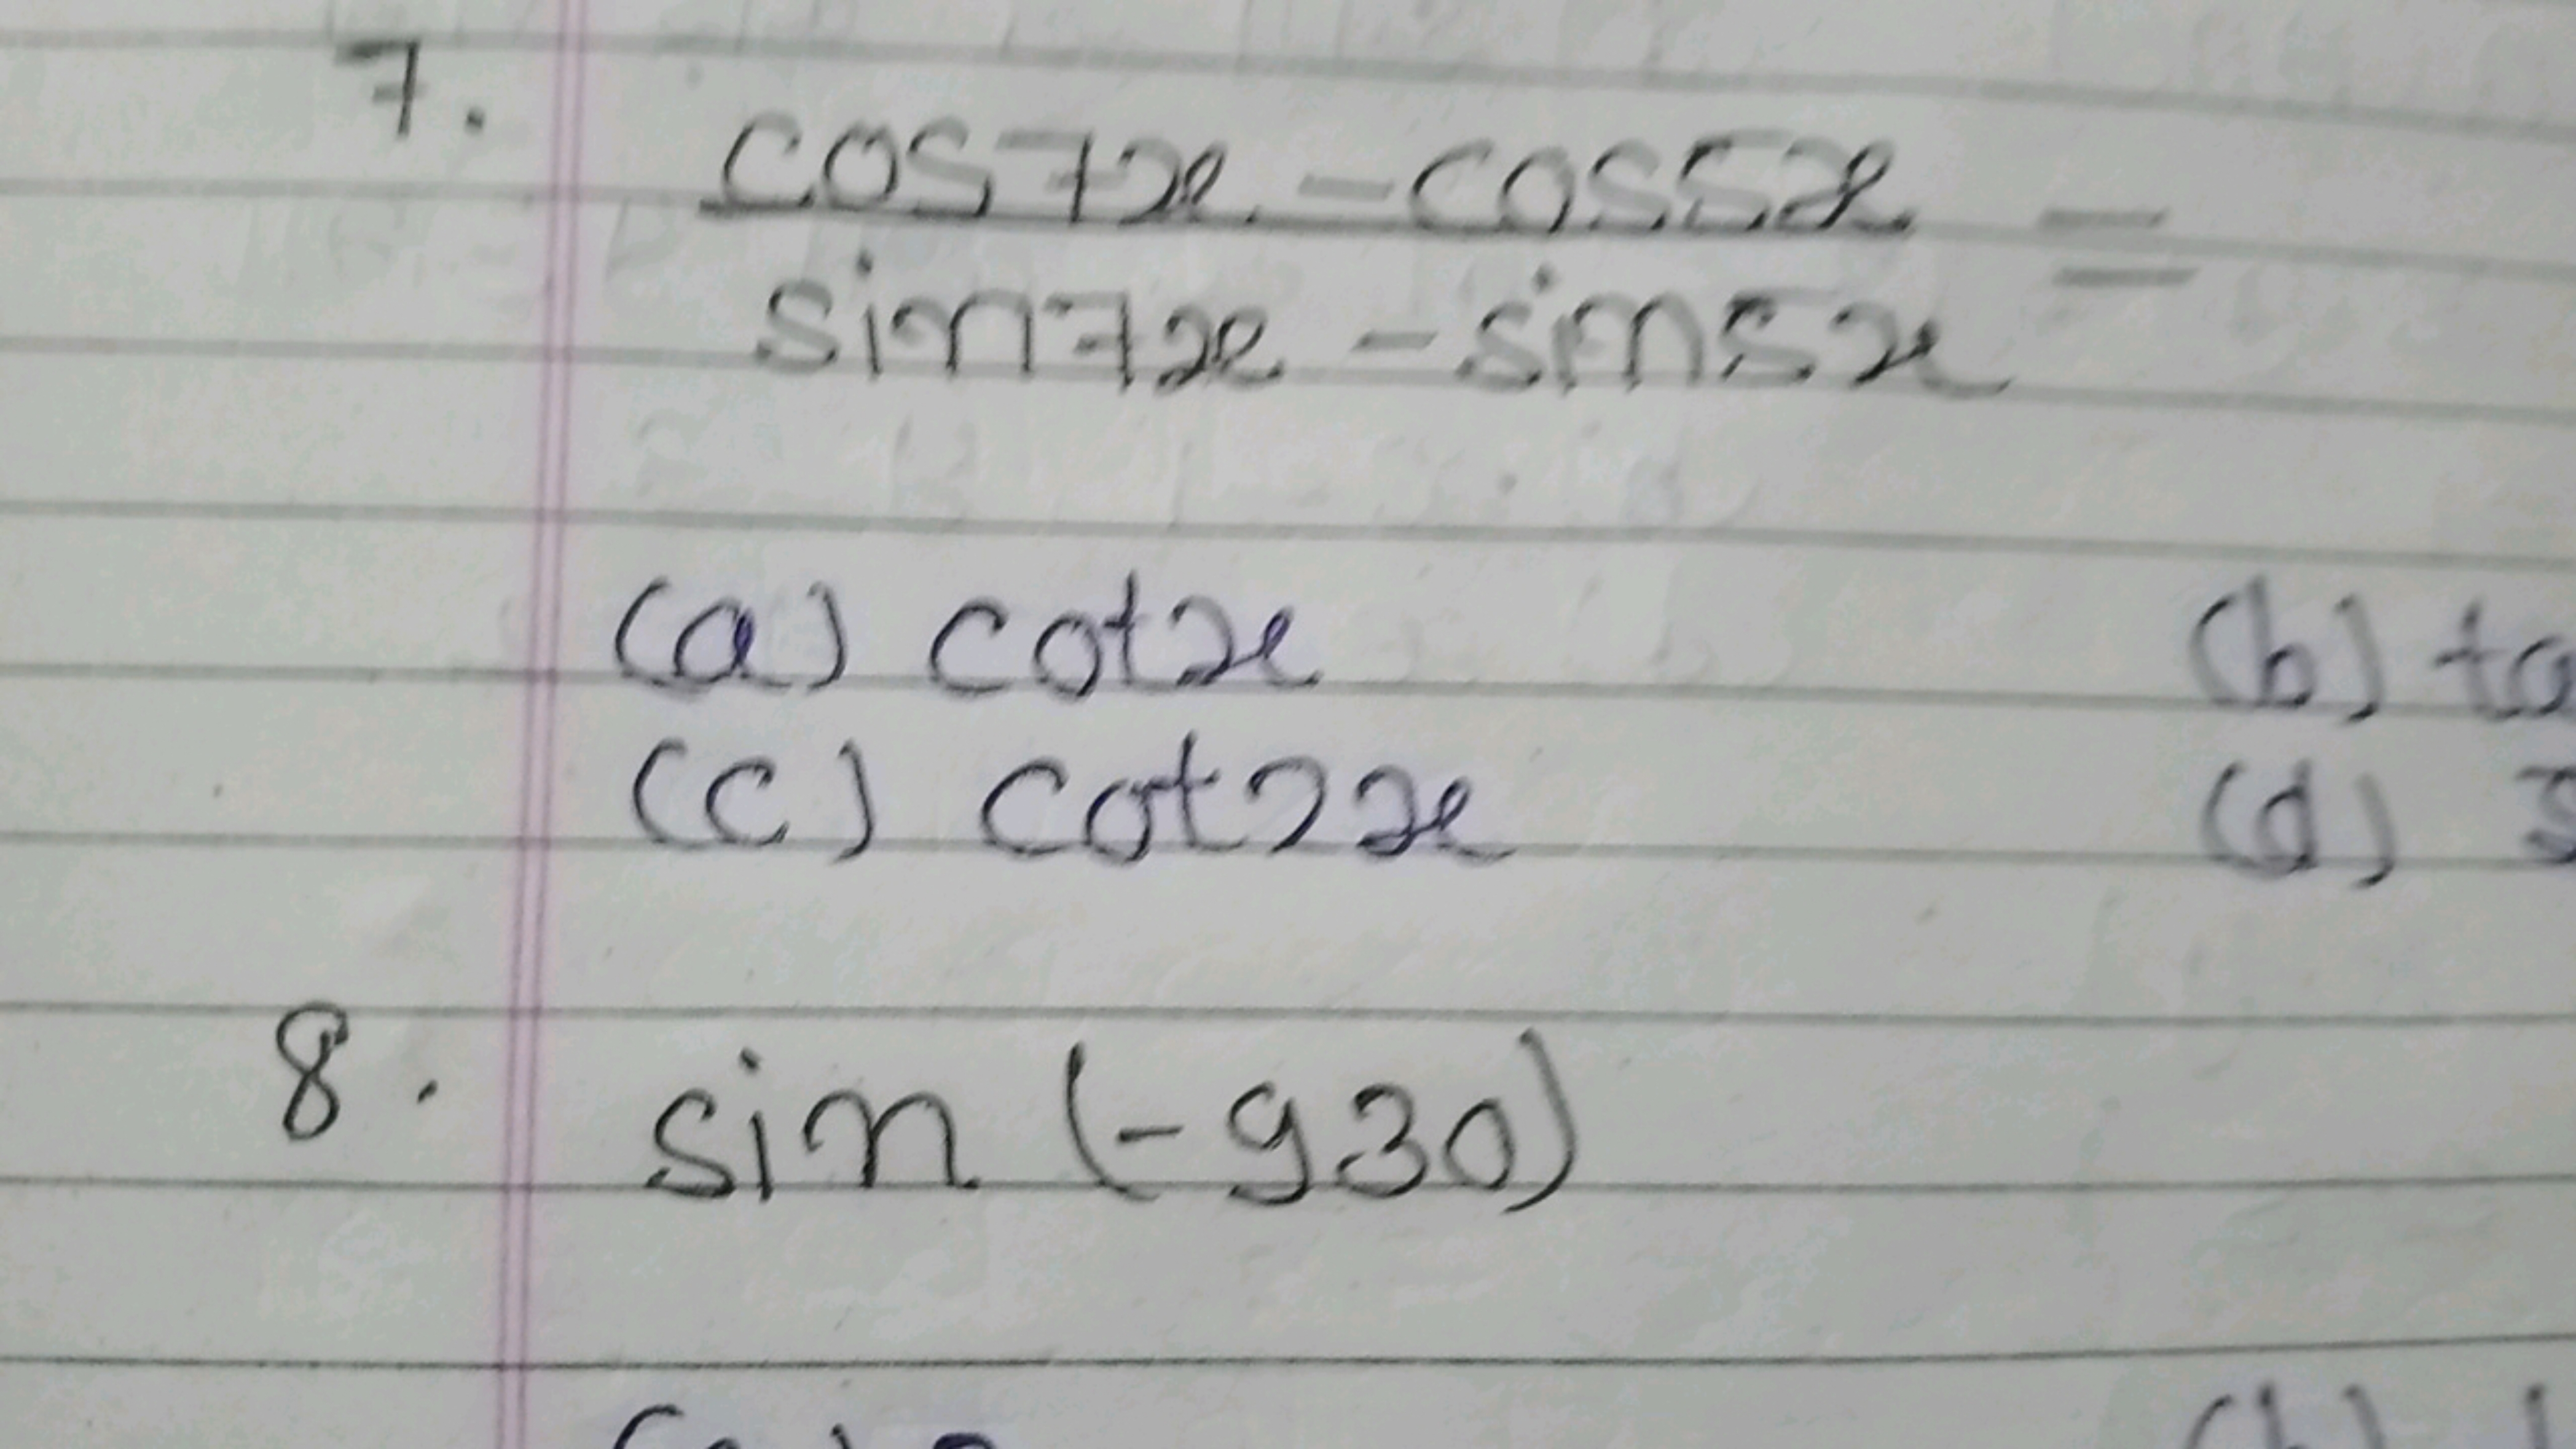 7. cos7x - cos5x =
sin7x - sin5x
(a) cotx (b)
(c) cot2x (d)
8. sin (-930)